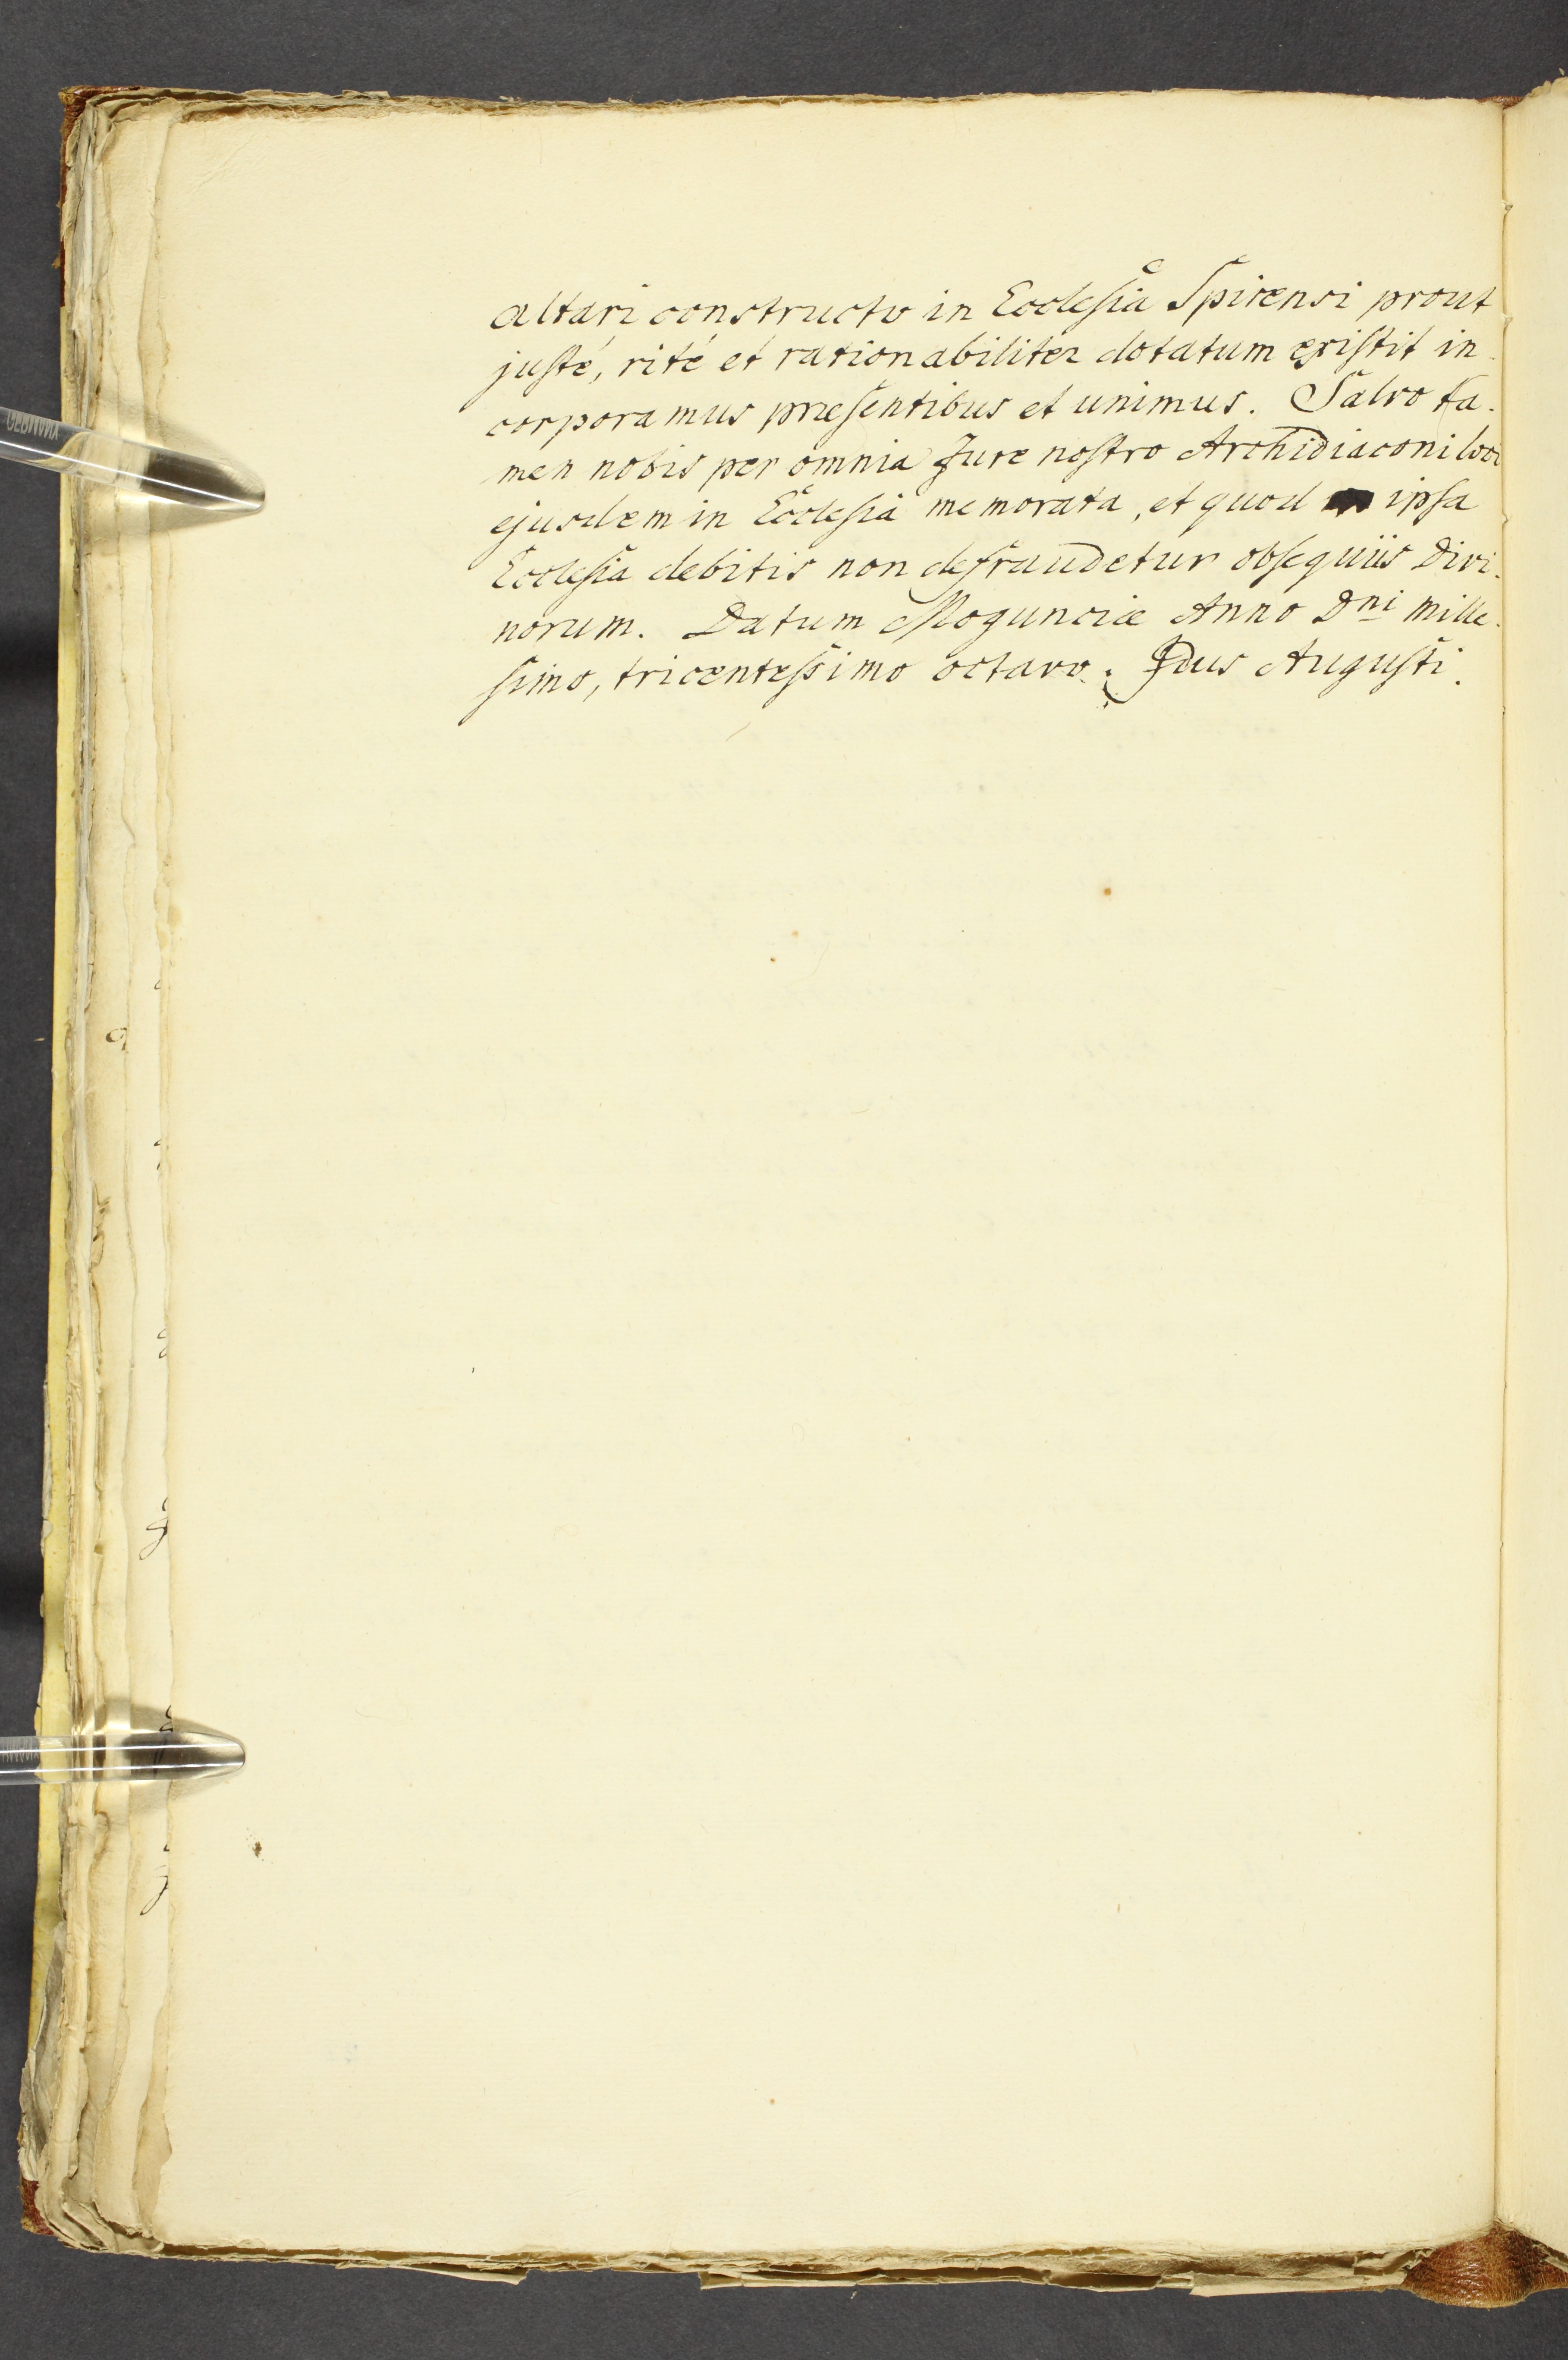 altari constructo in Ecclesiâ Spirensi prout
justé, rité et rationabiliter dotatum existit in-
corporamus præsentibus et unimus. Salvo ta-
men nobis per omnia Jure nostro Archidiaconi loci
ejusdem in Ecclesiâ memorata, et quod ipsa
Ecclesia debitis non defraudetur obsequiis Divi-
norum. Datum Moguncia Anno Dni mille-
simo, tricentesimo octavo. Idus Augusti.